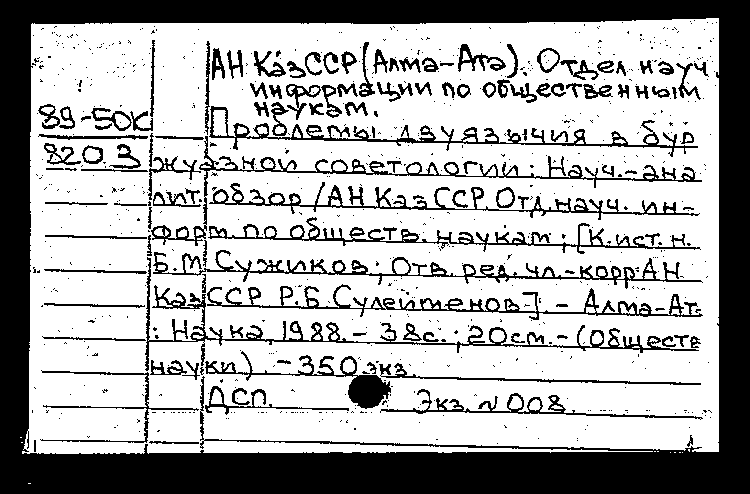 АН КазССР (Алма-Ата). Отдел науч.
информации по общественным
наукам.
89-50К
Проблемы двуязычия в бур
8203
жуазной советологии: Науч.-ана
лит. обзор / АН КазССР. Отд. науч. ин-
форм. по обществ. наукам; [К.ист.н.
Б.М. Сужиков; Отв. ред. чл.-корр. АН
КазССР Р.Б. Сулейменов]. - Алма-Ат.
: Наука, 1988. - 38с.; 20см. - (Обществ
науки). - 350 экз.
ДСП. Экз. № 008.